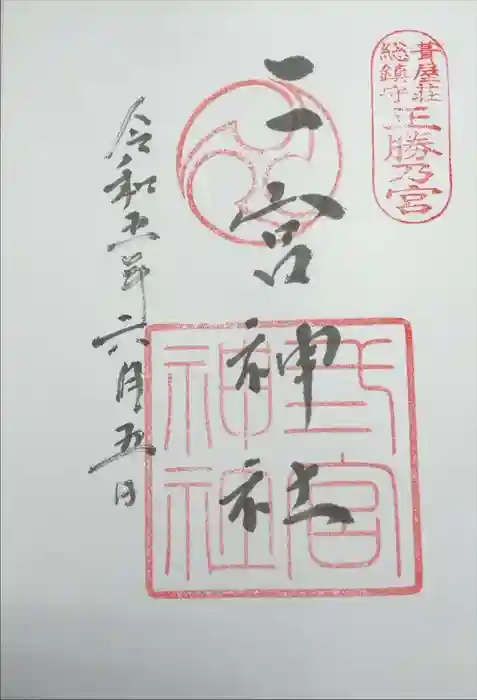 葺屋荘
総鎮守
正勝乃宮
二宮神社
令和五年六月五日
宮
神社